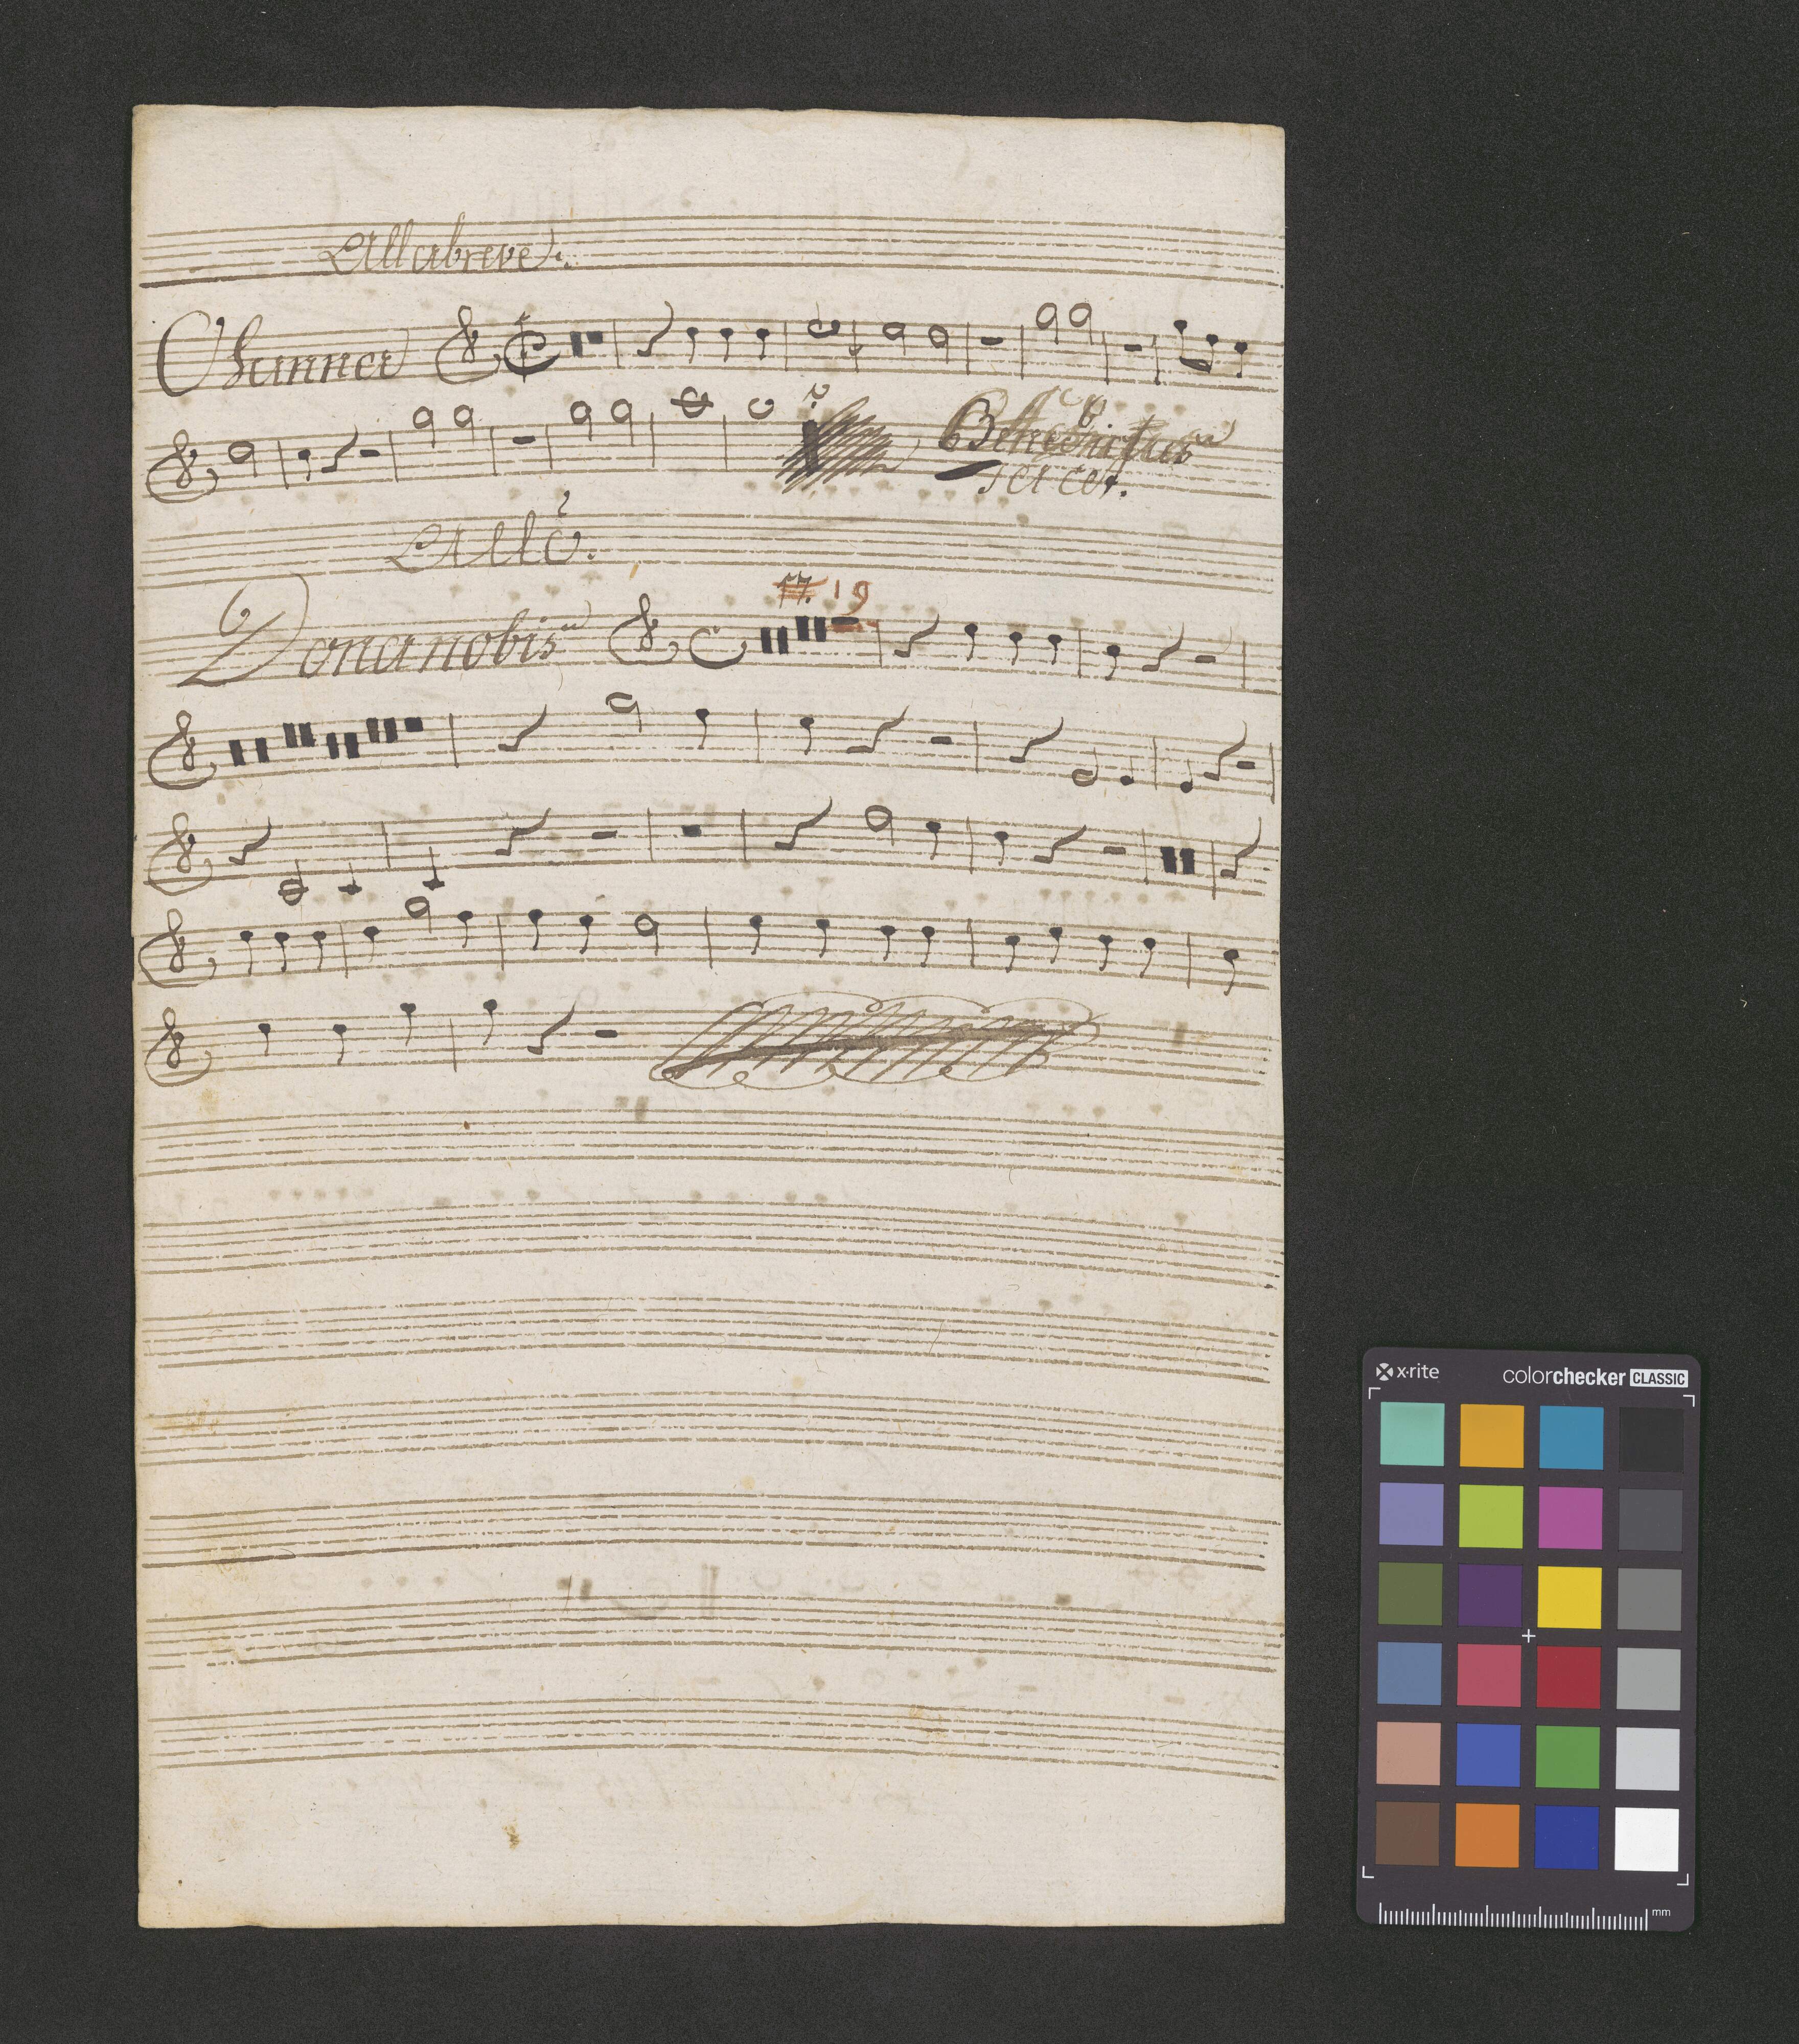 Allabreve.
Osanna
Benedictus
tacet.
Allo.
17. 19
Dona nobis
x·rite
colorchecker CLASSIC
mm